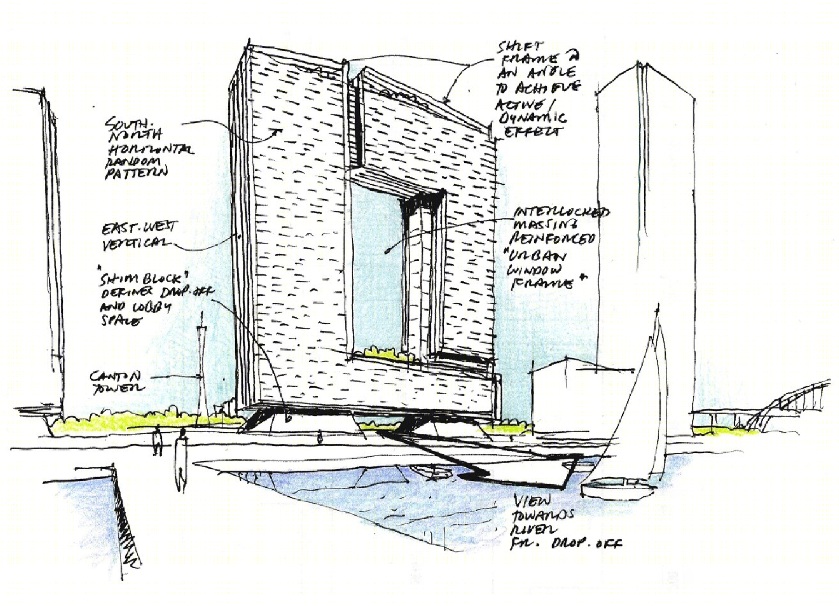 SHIFT
FRAME @
AN ANGLE
TO ACHIEVE
ACTIVE/
DYNAMIC
EFFECT
SOUTH-
NORTH
HORIZONTAL
RANDOM
PATTERN
EAST-WEST
VERTICAL
INTERLOCKED
MASSING
REINFORCED
"URBAN
WINDOW
FRAME"
"SHIM BLOCK"
DEFINES DROP-OFF
AND LOBBY
SPACE
CANTON
TOWER
VIEW
TOWARDS
RIVER
FR. DROP-OFF